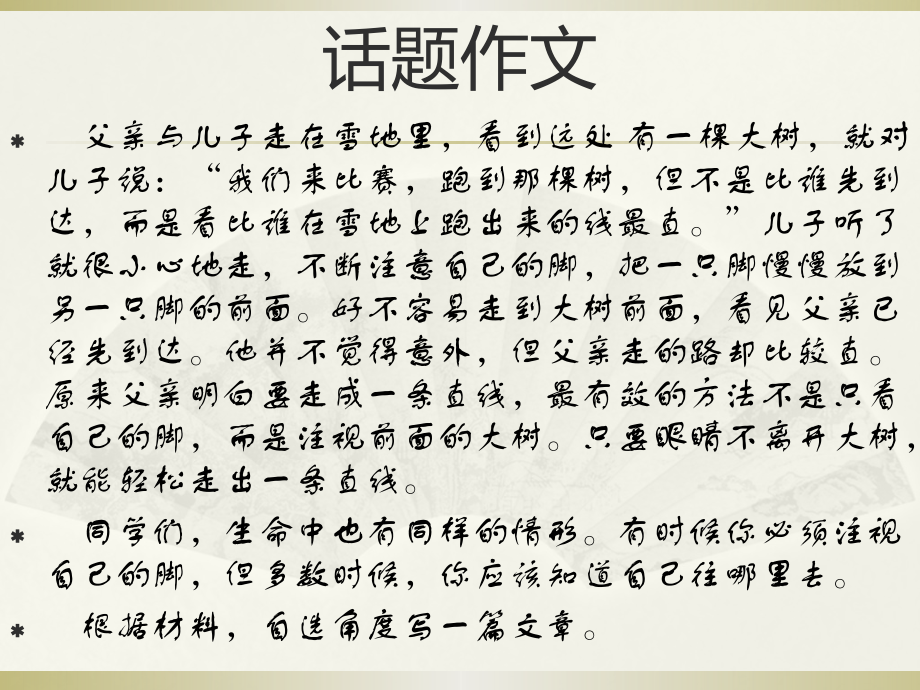 话题作文
父亲与儿子走在雪地里，看到远处有一棵大树，就对
儿子说：“我们来比赛，跑到那棵树，但不是比谁先到
达，而是看比谁在雪地上跑出来的线最直。”儿子听了
就很小心地走，不断注意自己的脚，把一只脚慢慢放到
另一只脚的前面。好不容易走到大树前面，看见父亲已
经先到达。他并不觉得意外，但父亲走的路却比较直。
原来父亲明白要走成一条直线，最有效的方法不是只看
自己的脚，而是注视前面的大树。只要眼睛不离开大树，
就能轻松走出一条直线。
同学们，生命中也有同样的情形。有时候你必须注视
自己的脚，但多数时候，你应该知道自己往哪里去。
根据材料，自选角度写一篇文章。